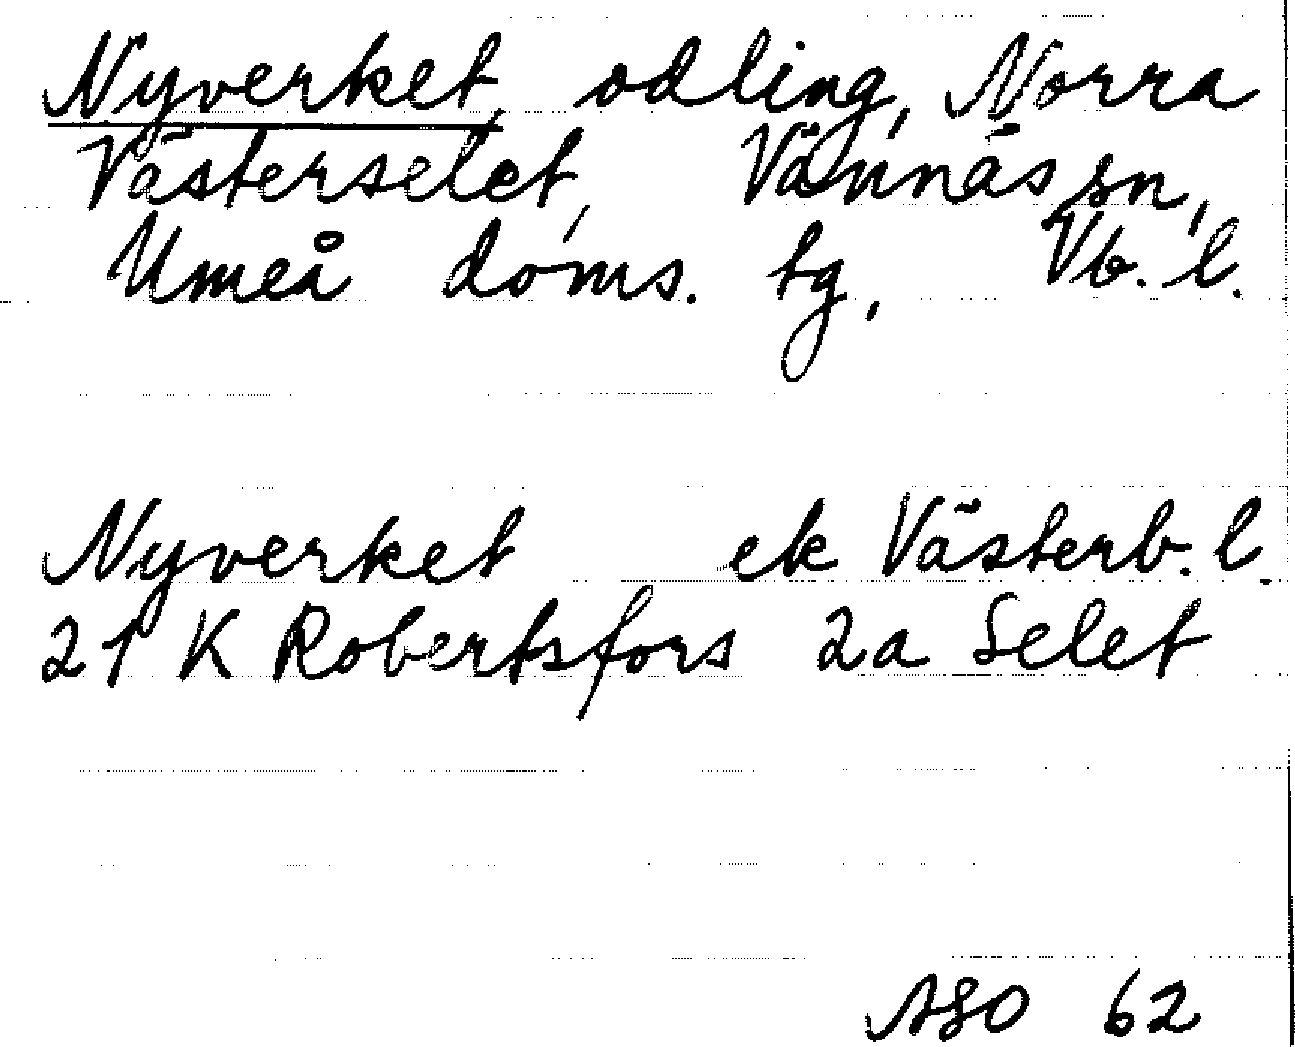 Nyverket, odling, Norra
Västerselet, Vännäs sn,
Umeå doms. tg, Vb. l.
Nyverket ek Västerb. l.
21 K Robertsfors 2a Selet
ASO 62